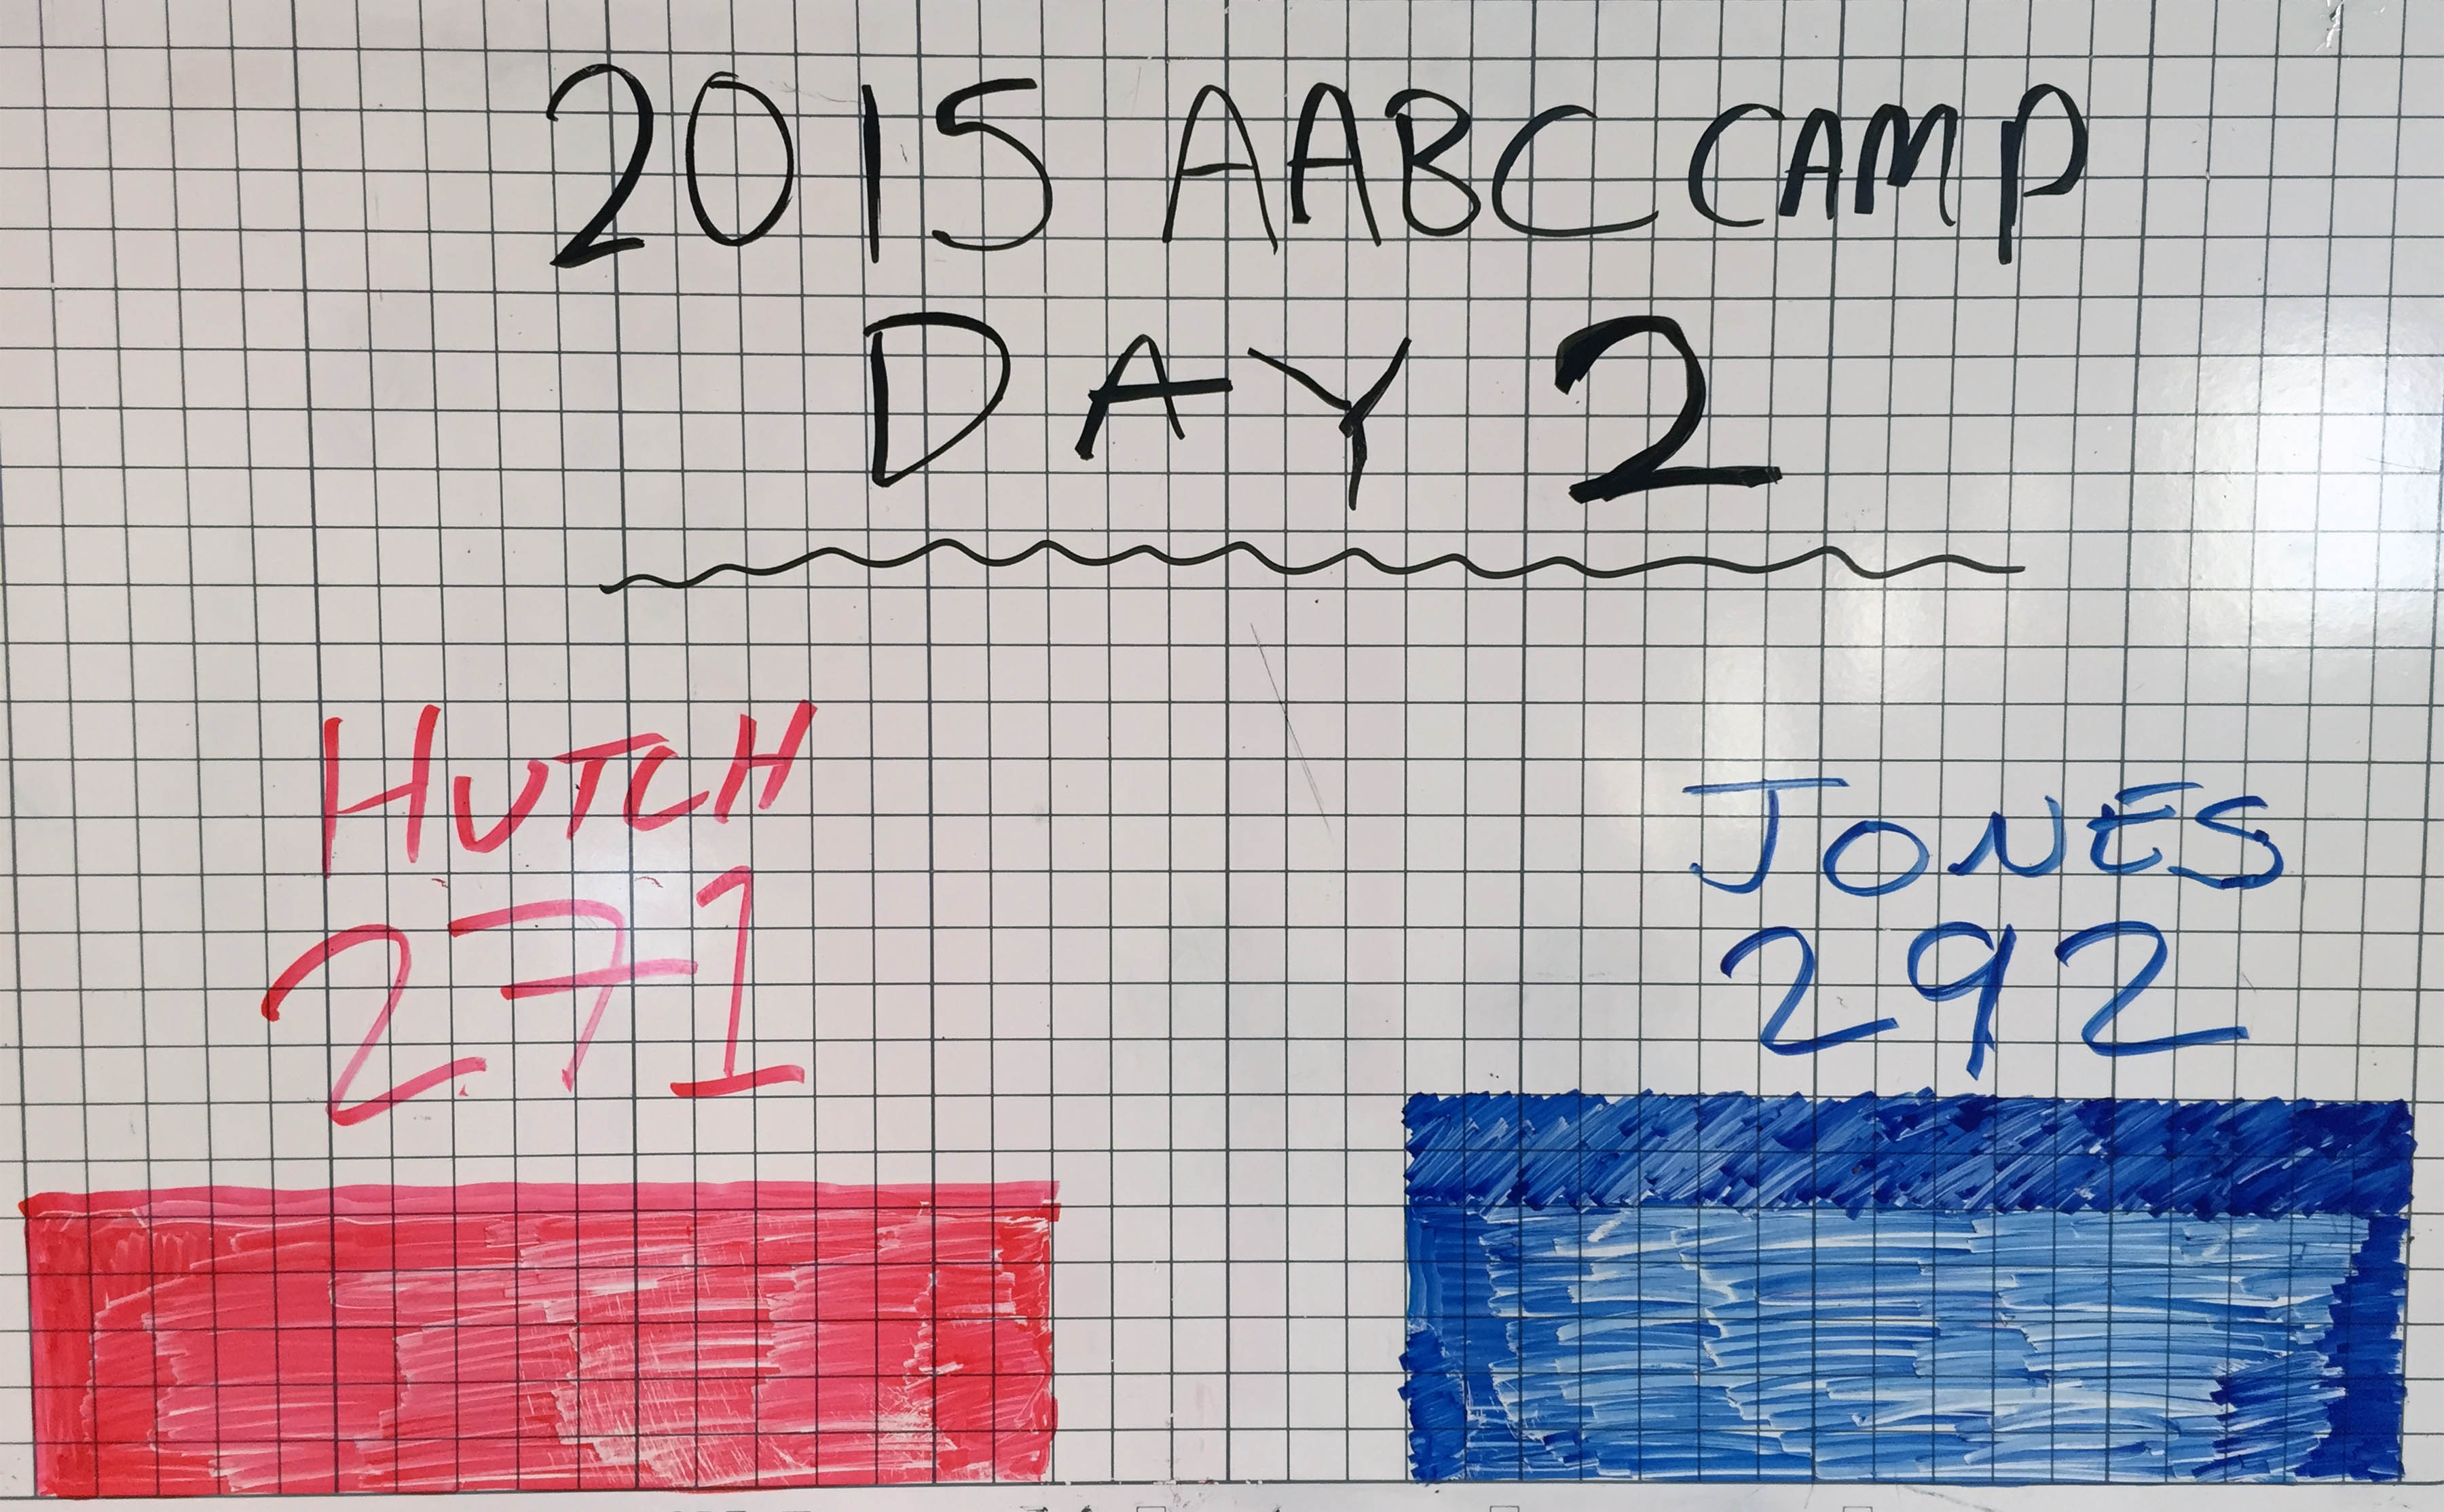 2015 AABC CAMP
DAY 2
HUTCH
271
JONES
292